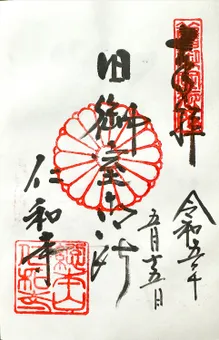 奉拝
旧御室御所
仁和寺
令和五年
五月十五日